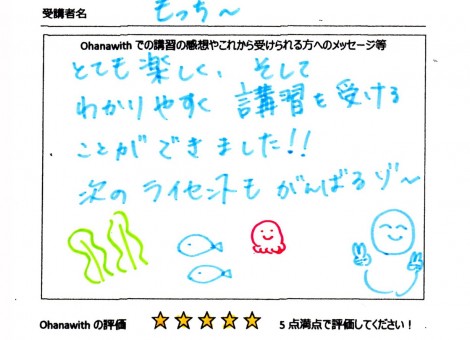 受講者名 もっち～
Ohanawith での講習の感想やこれから受けられる方へのメッセージ等
とても楽しく、そして
わかりやすく 講習を受ける
ことができました!!
次の ライセンスも がんばるゾ～
Ohanawith の評価 ★★★★★ 5 点満点で評価してください！